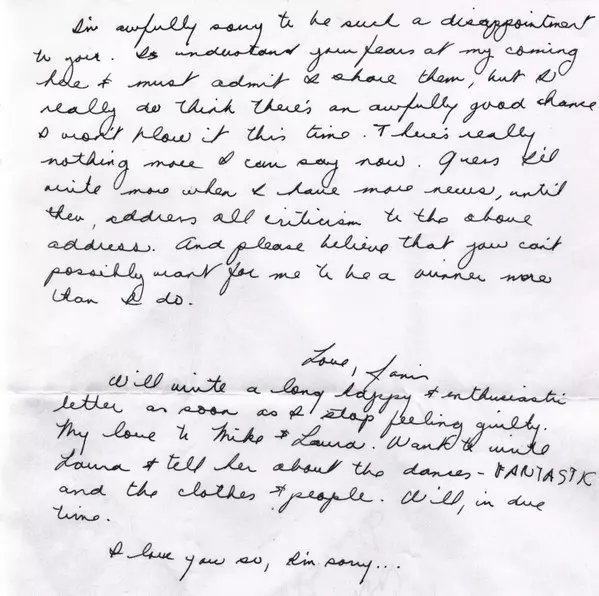 I'm awfully sorry to be such a disappointment
to you. I understand your fears at my coming
here & must admit I share them, but I
really do think there's an awfully good chance
I won't blow it this time. There's really
nothing more I can say now. Guess I'll
write more when I have more news, until
then, address all criticism to the above
address. And please believe that you can't
possibly want for me to be a winner more
than I do.
Love, Janis
Will write a long happy & enthusiastic
letter as soon as I stop feeling guilty.
My love to Mike & Laura. Want to write
Laura & tell her about the dances - FANTASTIC
and the clothes & people. Will, in due
time.
I love you so, I'm sorry...